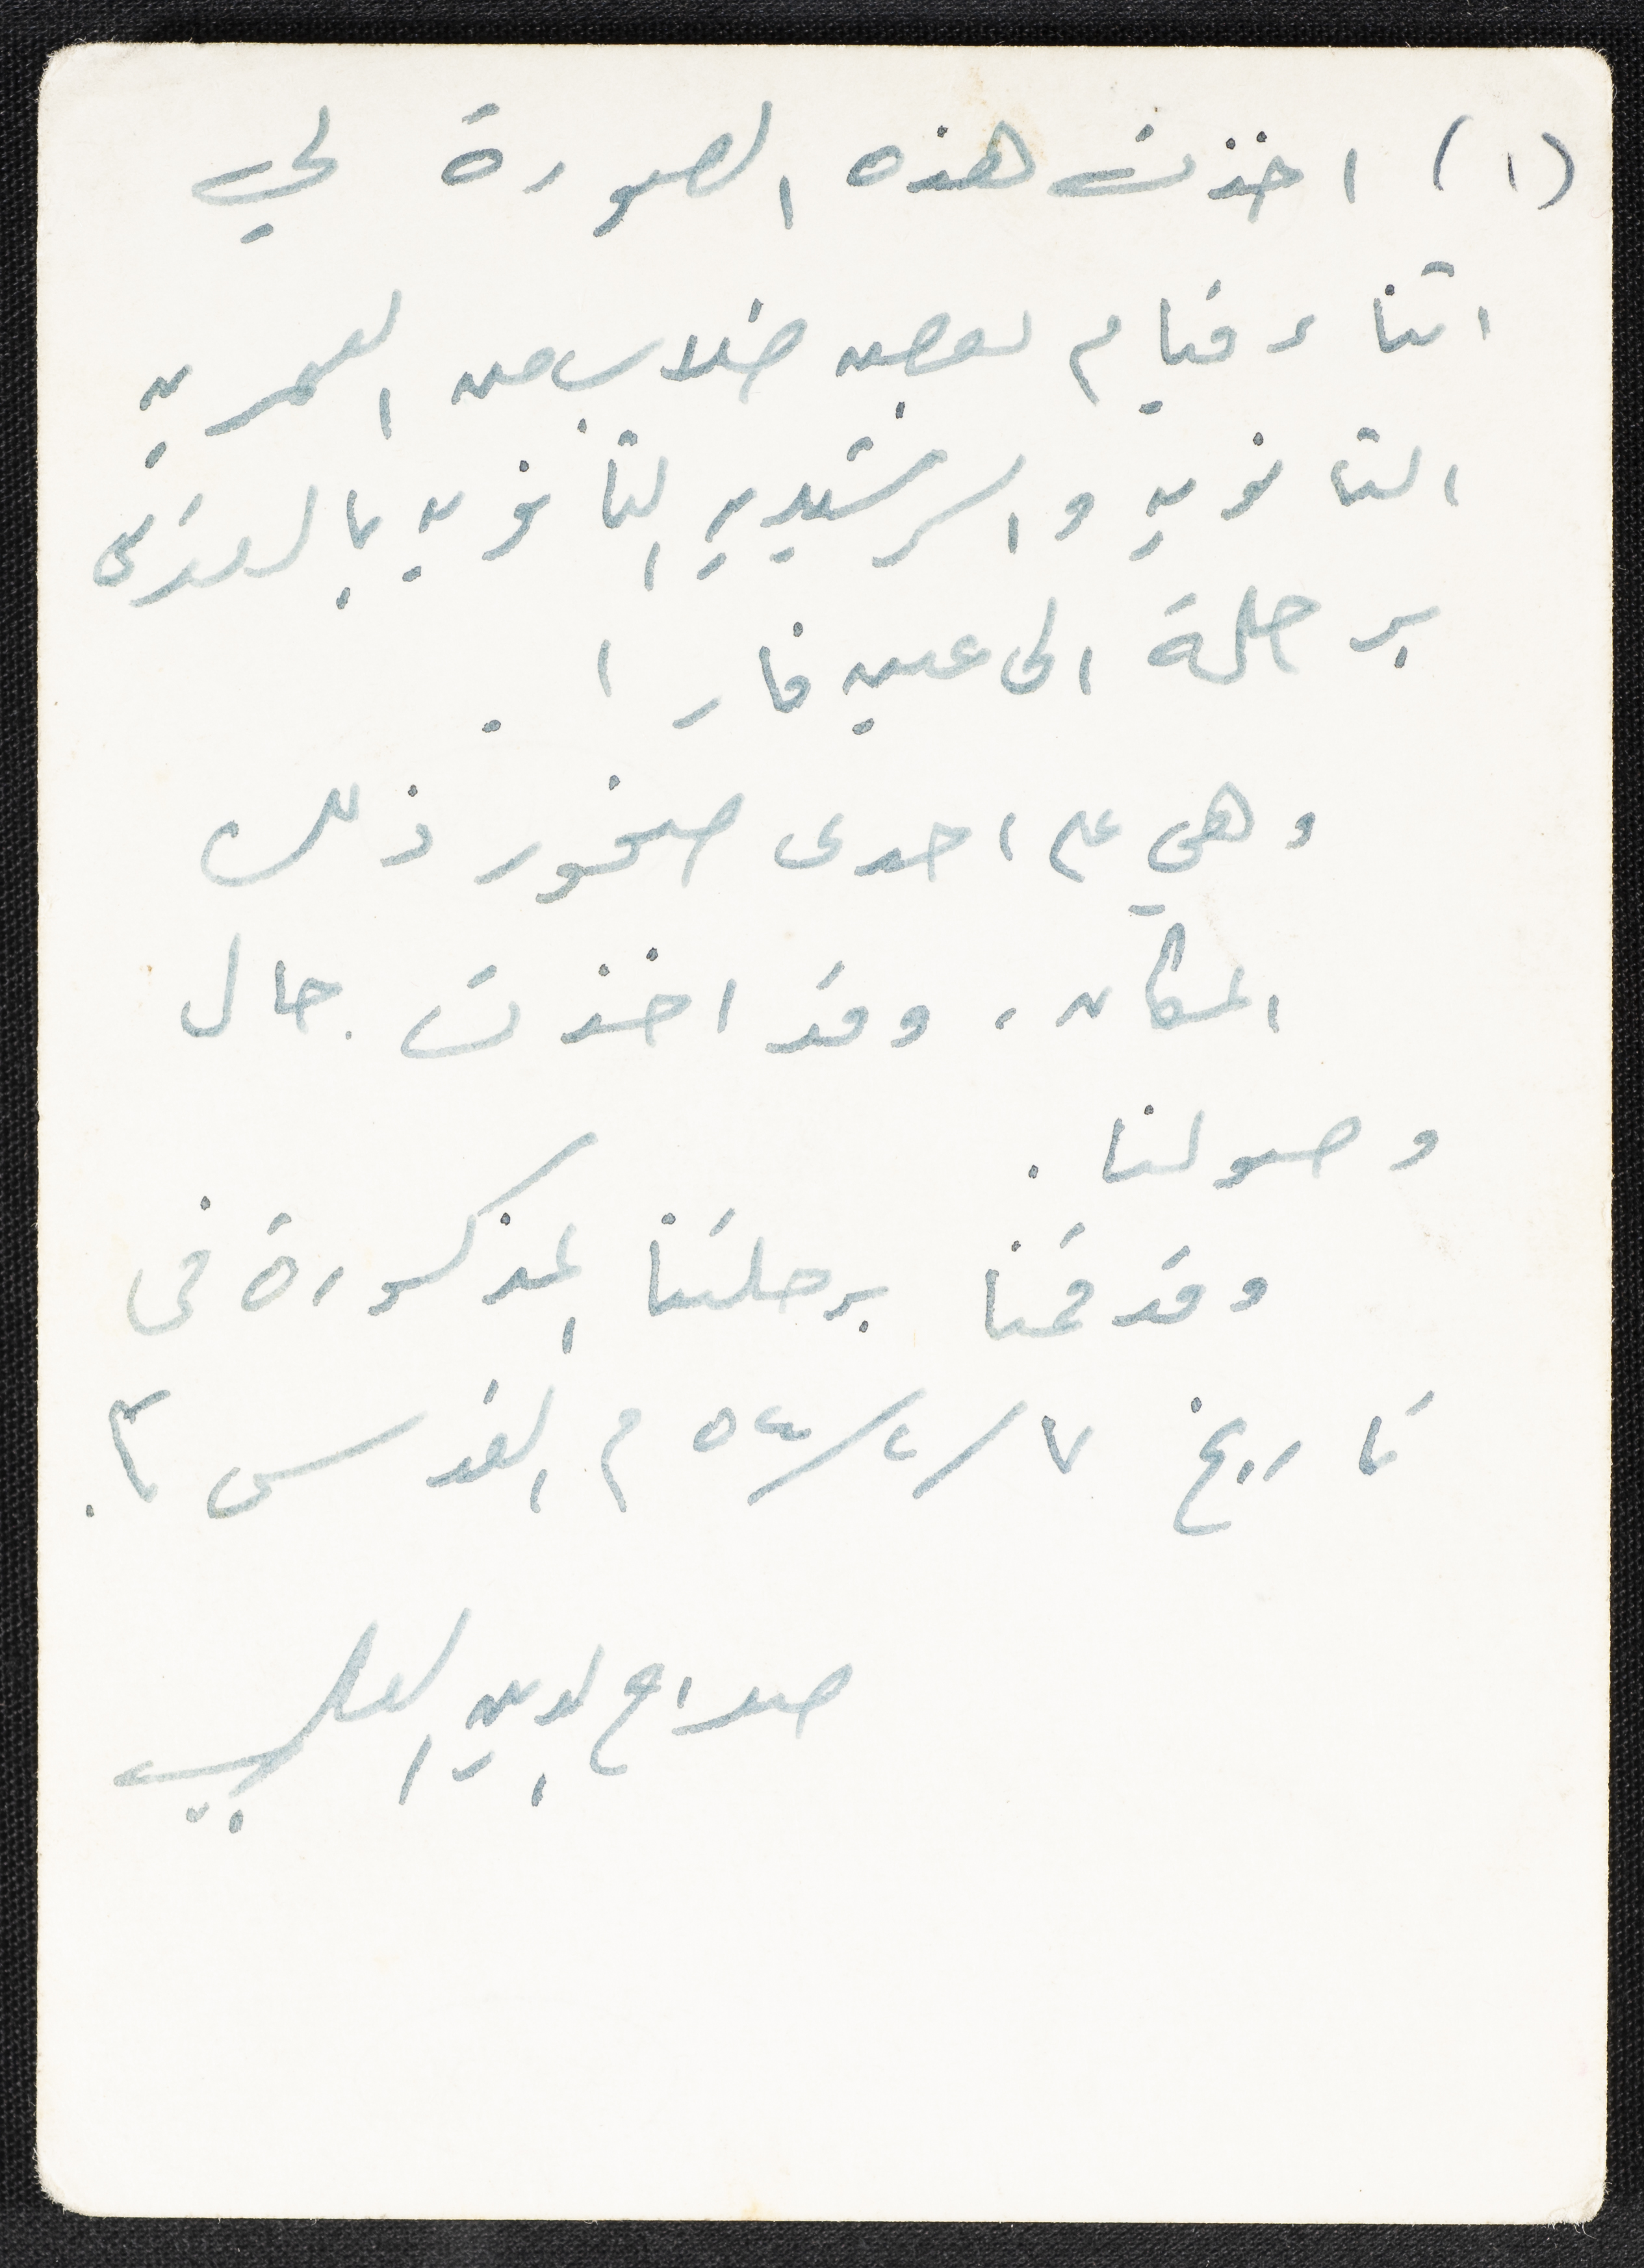 (١) اخذت هذه الصورة لي
اثناء قيام بعض طلاب من العمرية
الثانوية والرشيدية الثانوية بالقدس
برحلة الى عين فارا .
وهي على احدى صخور ذلك
المكان ، وقد اخذت حال
وصولنا .
وقد قمنا برحلتنا المذكورة في
تاريخ ٧/٢/٥٤ م القدس
صلاح الدين